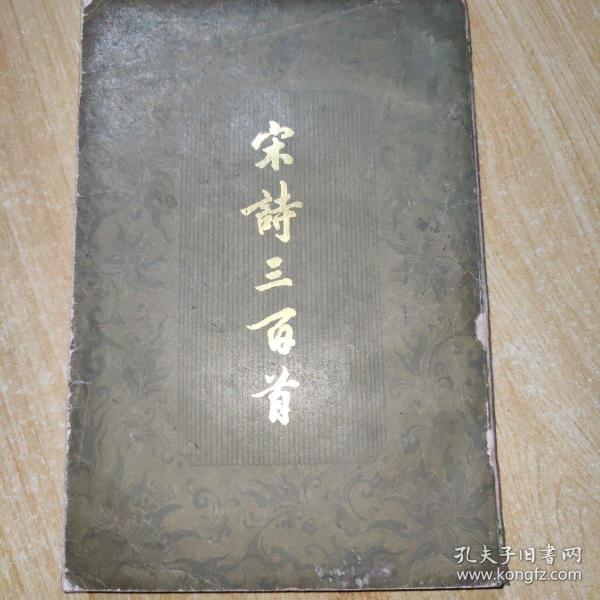 宋詩三百首
孔夫子旧書网
www.kongfz.com